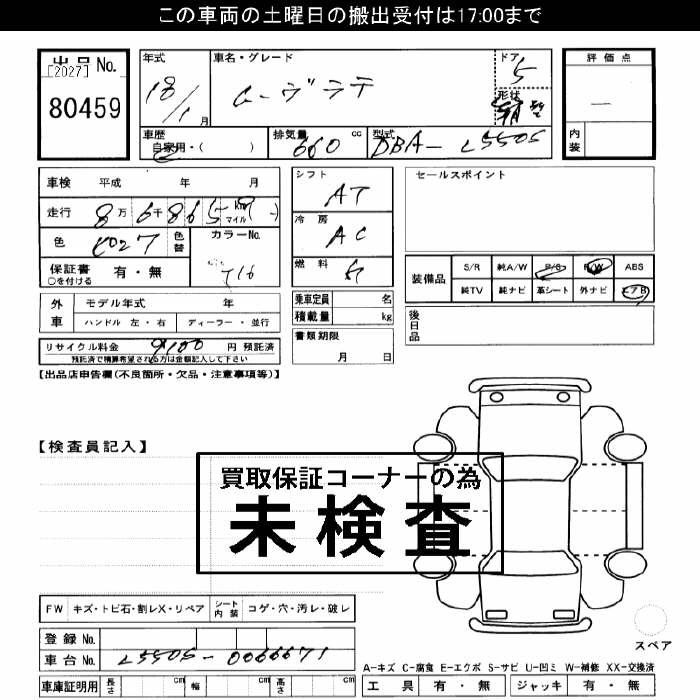 この車両の土曜日の搬出受付は17:00まで
出品No.
[2027]
80459
年式
18/1月
車名・グレード
ムーヴラテ
ドア
5
形状
評価点
内装
車歴
自家用・( )
排気量
660 cc
型式
DBA-L550S
車検 平成 年 月
走行 8万6千865 km マイル
色
色替
カラーNo.
T16
保証書 有・無
○を付ける
シフト
AT
冷房
AC
燃料
セールスポイント
装備品
S/R 純A/W P/S P/W ABS
純TV 純ナビ 革シート 外ナビ エアB
外車
モデル年式 年
ハンドル 左・右 ディーラー・並行
乗車定員 名
積載量 kg
後日品
リサイクル料金 9100 円 預託済
預託済で精算希望される方は金額記入して下さい
書類期限
月 日
【出品店申告欄(不良箇所・欠品・注意事項等)】
【検査員記入】
買取保証コーナーの為
未検査
FW キズ・トビ石・割レX・リペア
シート内装 コゲ・穴・汚レ・破レ
登録No.
車台No. L550S-0066671
スペア
A-キズ C-腐食 E-エクボ S-サビ U-凹ミ W-補修 XX-交換済
車庫証明用 長さ cm 幅 cm 高さ cm
工具 有・無 ジャッキ 有・無